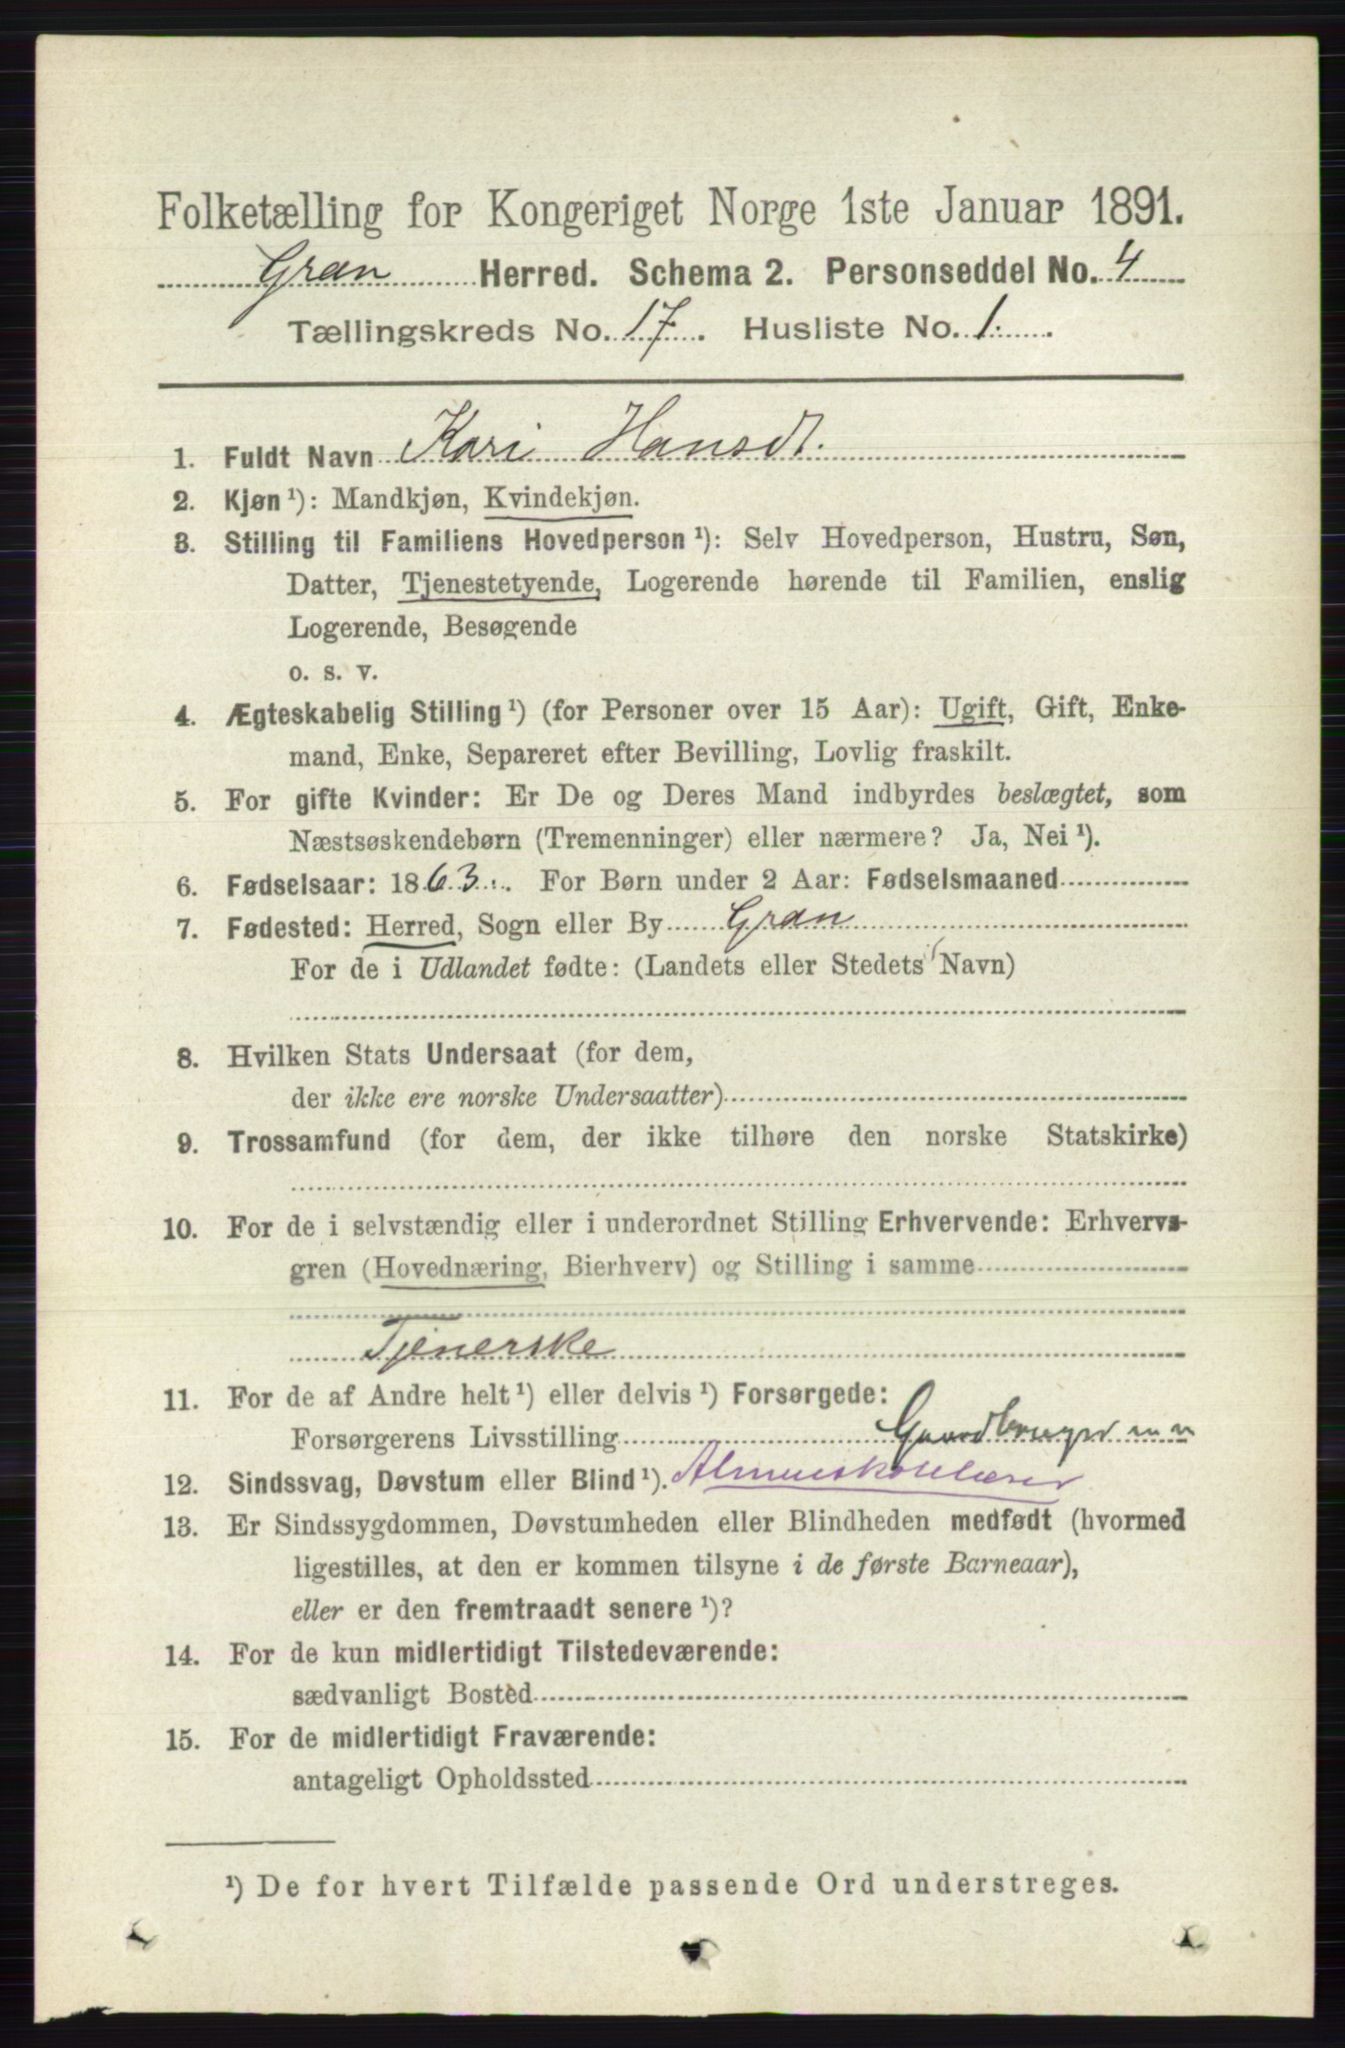 Folketælling for Kongeriget Norge 1ste Januar 1891.
Gran Herred. Schema 2. Personseddel No. 4
Tællingskreds No. 17. Husliste No. 1.
1. Fuldt Navn Kari Hansdt.
2. Kjøn ¹): Mandkjøn, Kvindekjøn.
3. Stilling til Familiens Hovedperson ¹): Selv Hovedperson, Hustru, Søn,
Datter, Tjenestetyende, Logerende hørende til Familien, enslig
Logerende, Besøgende
o. s. v.
4. Ægteskabelig Stilling ¹) (for Personer over 15 Aar): Ugift, Gift, Enke-
mand, Enke, Separeret efter Bevilling, Lovlig fraskilt.
5. For gifte Kvinder: Er De og Deres Mand indbyrdes beslægtet, som
Næstsøskendebørn (Tremenninger) eller nærmere? Ja, Nei ¹).
6. Fødselsaar: 1863. For Børn under 2 Aar: Fødselsmaaned
7. Fødested: Herred, Sogn eller By Gran
For de i Udlandet fødte: (Landets eller Stedets Navn)
8. Hvilken Stats Undersaat (for dem,
der ikke ere norske Undersaatter)
9. Trossamfund (for dem, der ikke tilhøre den norske Statskirke)
10. For de i selvstændig eller i underordnet Stilling Erhvervende: Erhvervs-
gren (Hovednæring, Bierhverv) og Stilling i samme
Tjenerske
11. For de af Andre helt ¹) eller delvis ¹) Forsørgede:
Forsørgerens Livsstilling Gaardbruger
12. Sindssvag, Døvstum eller Blind ¹). Almueskolelærer
13. Er Sindssygdommen, Døvstumheden eller Blindheden medfødt (hvormed
ligestilles, at den er kommen tilsyne i de første Barneaar),
eller er den fremtraadt senere ¹)?
14. For de kun midlertidigt Tilstedeværende:
sædvanligt Bosted
15. For de midlertidigt Fraværende:
antageligt Opholdssted
¹) De for hvert Tilfælde passende Ord understreges.